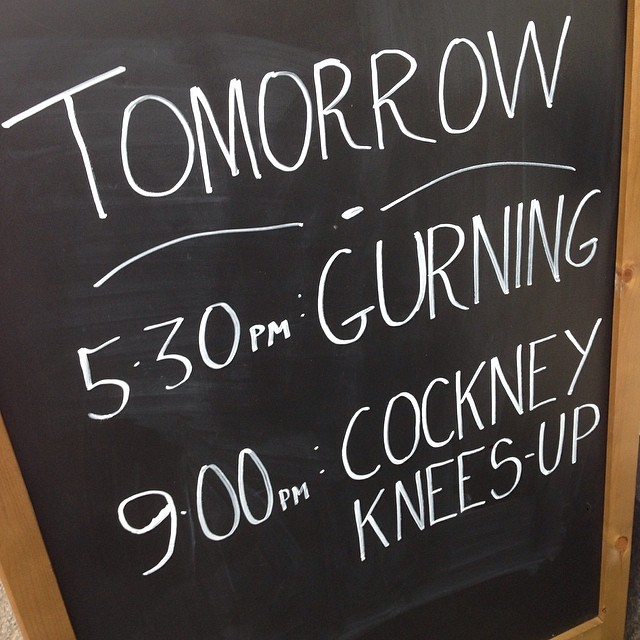 TOMORROW
5·30PM: GURNING
9·00PM: COCKNEY
KNEES-UP